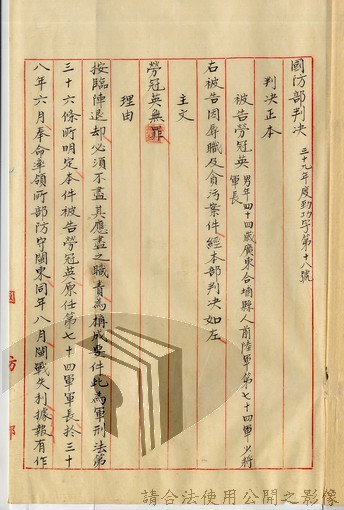 國防部判決 三十九年度勁功字第十八號
判決正本
被告勞冠英 男年四十四歲廣東合埔縣人前陸軍第七十四軍少將
軍長
右被告因辱職及貪污案件經本部判決如左
主文
勞冠英無罪
理由
按臨陣退却必須不盡其應盡之職責為構成要件此為軍刑法第
三十六條所明定本件被告勞冠英原任第七十四軍軍長於三十
八年六月奉命率領所部防守閩東同年八月閩戰失利據報有作
國防部
請合法使用公開之影像